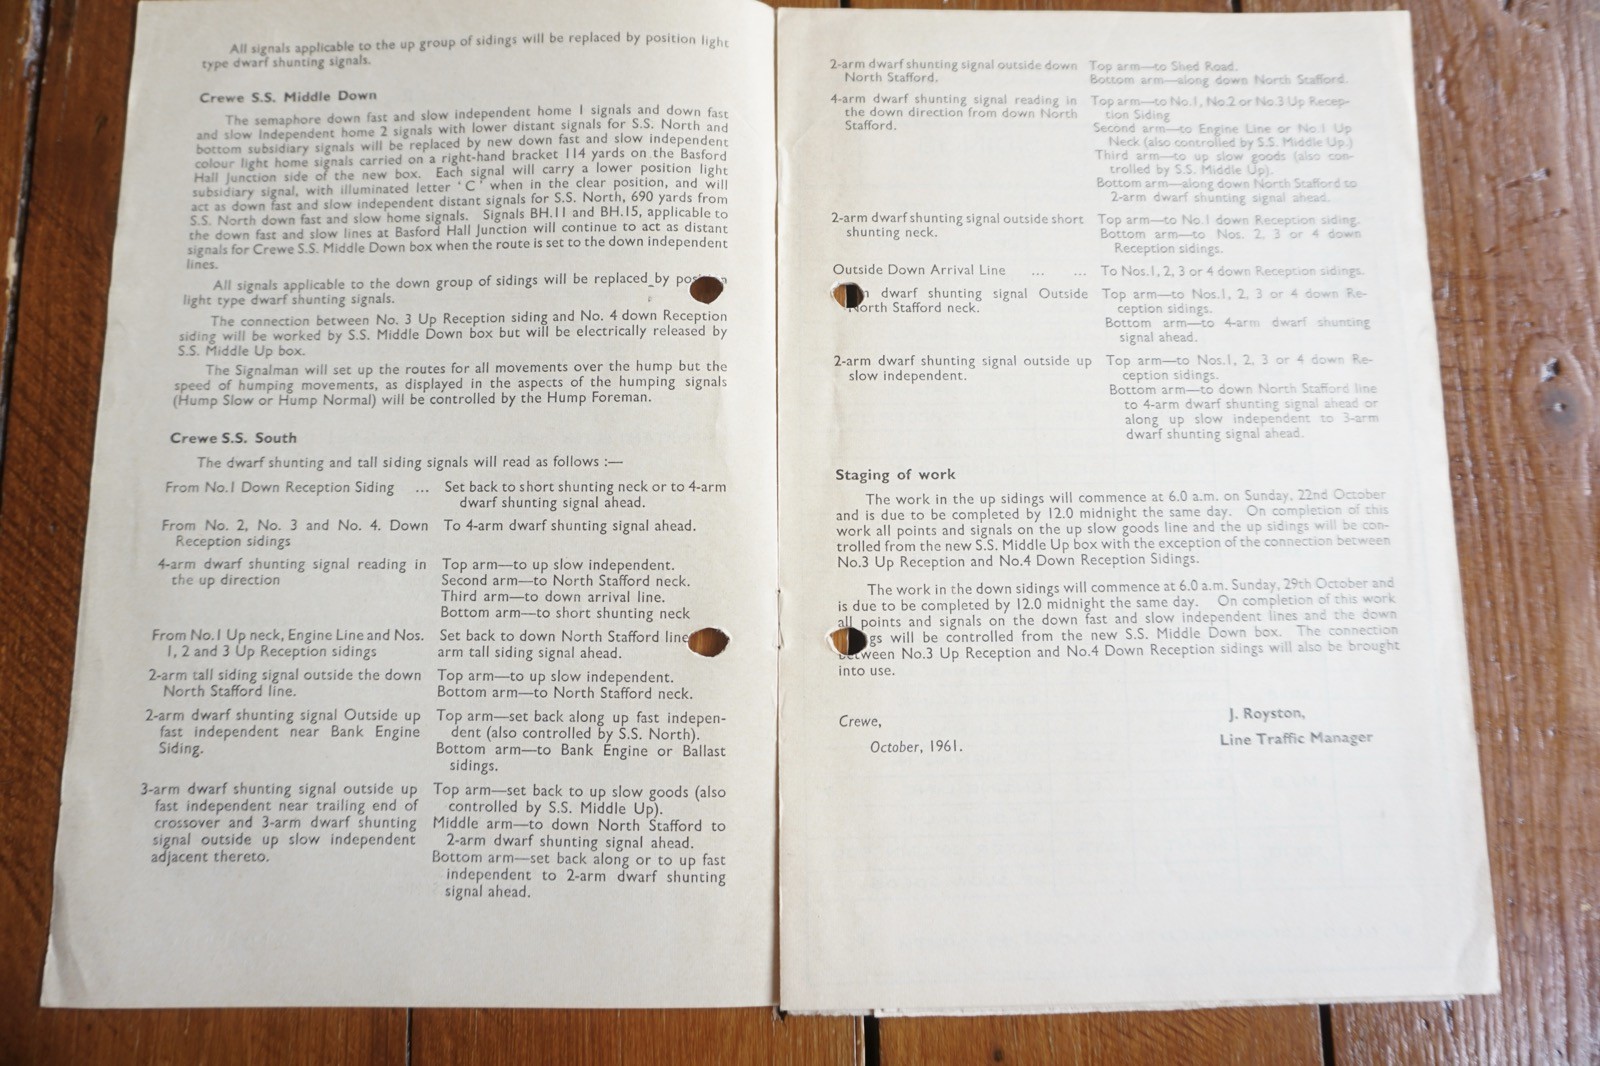 All signals applicable to the up group of sidings will be replaced by position light
type dwarf shunting signals.
Crewe S.S. Middle Down
The semaphore down fast and slow independent home 1 signals and down fast
and slow Independent home 2 signals with lower distant signals for S.S. North and
bottom subsidiary signals will be replaced by new down fast and slow independent
colour light home signals carried on a right-hand bracket 114 yards on the Basford
Hall Junction side of the new box. Each signal will carry a lower position light
subsidiary signal, with illuminated letter 'C' when in the clear position, and will
act as down fast and slow independent distant signals for S.S. North, 690 yards from
S.S. North down fast and slow home signals. Signals BH.11 and BH.15, applicable to
the down fast and slow lines at Basford Hall Junction will continue to act as distant
signals for Crewe S.S. Middle Down box when the route is set to the down independent
lines.
All signals applicable to the down group of sidings will be replaced by
light type dwarf shunting signals.
The connection between No. 3 Up Reception siding and No. 4 down Reception
siding will be worked by S.S. Middle Down box but will be electrically released by
S.S. Middle Up box.
The Signalman will set up the routes for all movements over the hump but the
speed of humping movements, as displayed in the aspects of the humping signals
(Hump Slow or Hump Normal) will be controlled by the Hump Foreman.
Crewe S.S. South
The dwarf shunting and tall siding signals will read as follows :—
From No.1 Down Reception Siding ... Set back to short shunting neck or to 4-arm
dwarf shunting signal ahead.
From No. 2, No. 3 and No. 4. Down To 4-arm dwarf shunting signal ahead.
Reception sidings
4-arm dwarf shunting signal reading in Top arm—to up slow independent.
the up direction Second arm—to North Stafford neck.
Third arm—to down arrival line.
Bottom arm—to short shunting neck
From No.1 Up neck, Engine Line and Nos. Set back to down North Stafford line
1, 2 and 3 Up Reception sidings arm tall siding signal ahead.
2-arm tall siding signal outside the down Top arm—to up slow independent.
North Stafford line. Bottom arm—to North Stafford neck.
2-arm dwarf shunting signal Outside up Top arm—set back along up fast indepen-
fast independent near Bank Engine dent (also controlled by S.S. North).
Siding. Bottom arm—to Bank Engine or Ballast
sidings.
3-arm dwarf shunting signal outside up Top arm—set back to up slow goods (also
fast independent near trailing end of controlled by S.S. Middle Up).
crossover and 3-arm dwarf shunting Middle arm—to down North Stafford to
signal outside up slow independent 2-arm dwarf shunting signal ahead.
adjacent thereto. Bottom arm—set back along or to up fast
independent to 2-arm dwarf shunting
signal ahead.
2-arm dwarf shunting signal outside down Top arm—to Shed Road.
North Stafford. Bottom arm—along down North Stafford.
4-arm dwarf shunting signal reading in Top arm—to No.1, No.2 or No.3 Up Recep-
the down direction from down North tion Siding
Stafford. Second arm—to Engine Line or No.1 Up
Neck (also controlled by S.S. Middle Up.)
Third arm—to up slow goods (also con-
trolled by S.S. Middle Up).
Bottom arm—along down North Stafford to
2-arm dwarf shunting signal ahead.
2-arm dwarf shunting signal outside short Top arm—to No.1 down Reception siding.
shunting neck. Bottom arm—to Nos. 2, 3 or 4 down
Reception sidings.
Outside Down Arrival Line ... ... To Nos.1, 2, 3 or 4 down Reception sidings.
dwarf shunting signal Outside Top arm—to Nos.1, 2, 3 or 4 down Re-
North Stafford neck. ception sidings.
Bottom arm—to 4-arm dwarf shunting
signal ahead.
2-arm dwarf shunting signal outside up Top arm—to Nos.1, 2, 3 or 4 down Re-
slow independent. ception sidings.
Bottom arm—to down North Stafford line
to 4-arm dwarf shunting signal ahead or
along up slow independent to 3-arm
dwarf shunting signal ahead.
Staging of work
The work in the up sidings will commence at 6.0 a.m. on Sunday, 22nd October
and is due to be completed by 12.0 midnight the same day. On completion of this
work all points and signals on the up slow goods line and the up sidings will be con-
trolled from the new S.S. Middle Up box with the exception of the connection between
No.3 Up Reception and No.4 Down Reception Sidings.
The work in the down sidings will commence at 6.0 a.m. Sunday, 29th October and
is due to be completed by 12.0 midnight the same day. On completion of this work
all points and signals on the down fast and slow independent lines and the down
gs will be controlled from the new S.S. Middle Down box. The connection
between No.3 Up Reception and No.4 Down Reception sidings will also be brought
into use.
Crewe, J. Royston,
October, 1961. Line Traffic Manager